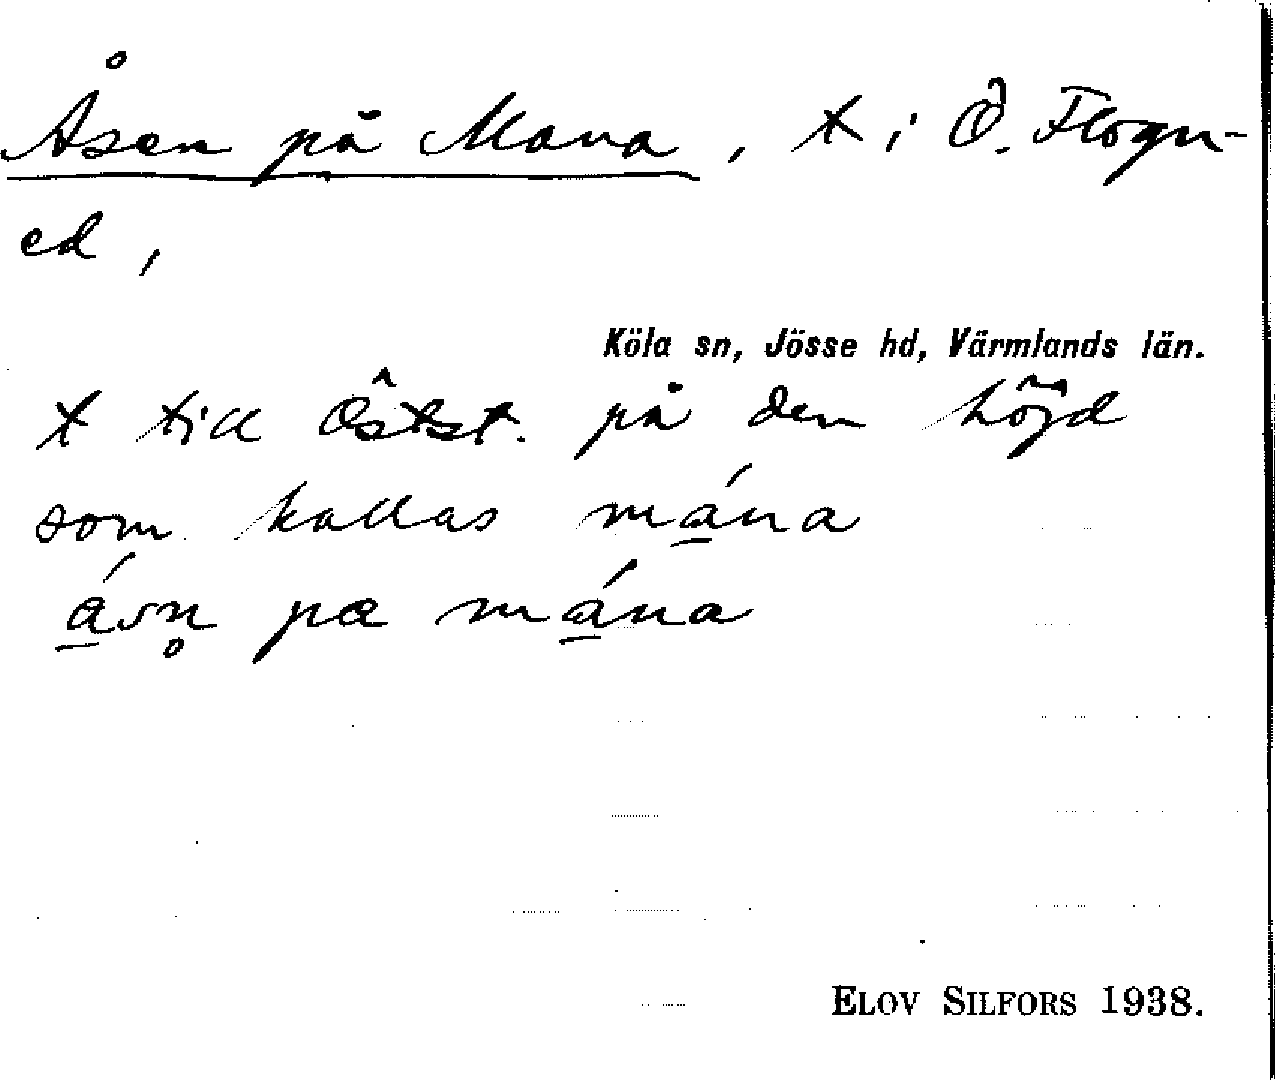 Åsen på Mana, t i Ö. Flogn-
ed,
Köla sn, Jösse hd, Värmlands län.
t till Östst. på den höjd
som kallas má̱na
á̱sn̥ pæ má̱na
ELOV SILFORS 1938.